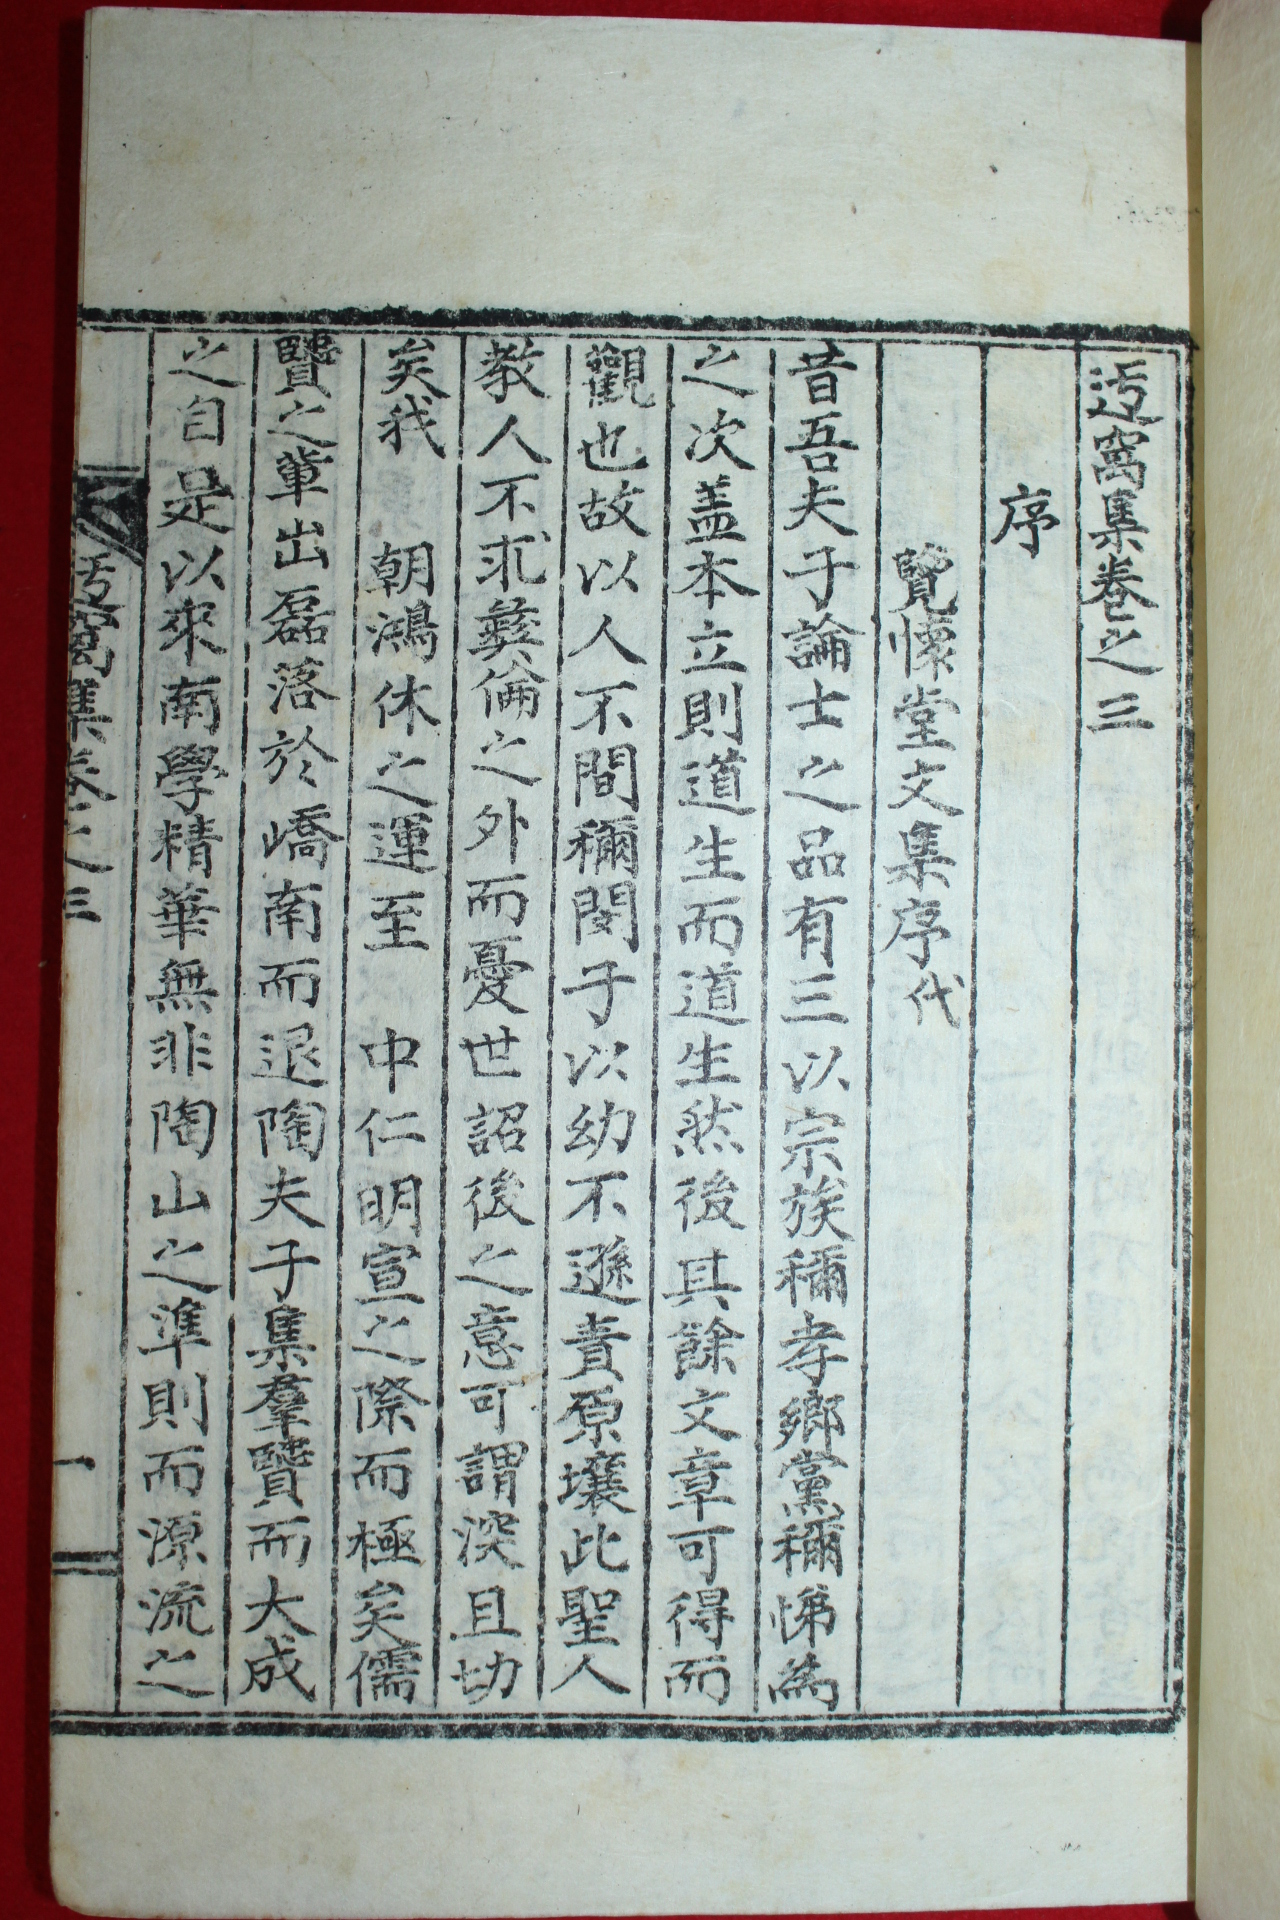 迃窩集卷之三
序
覽懷堂文集序代
昔吾夫子論士之品有三以宗族稱孝鄕黨稱悌為
之次盖本立則道生而道生然後其餘文章可得而
觀也故以人不間稱閔子以幼不遜責原壤此聖人
教人不求彝倫之外而憂世詔後之意可謂深且切
矣我　朝鴻休之運至　中仁明宣之際而極矣儒
賢之軰出磊落於嶠南而退陶夫子集羣賢而大成
之自是以來南學精華無非陶山之準則而源流之
迃窩集卷之三
一